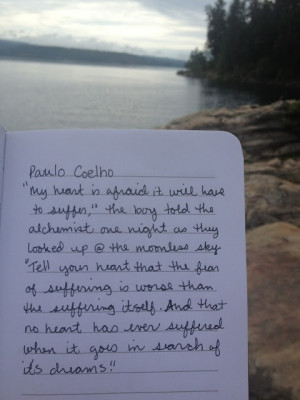 Paulo Coelho
"My heart is afraid it will have
to suffer," the boy told the
alchemist one night as they
looked up @ the moonless sky
"Tell your heart that the fear
of suffering is worse than
the suffering itself. And that
no heart has ever suffered
when it goes in search of
it's dreams!"